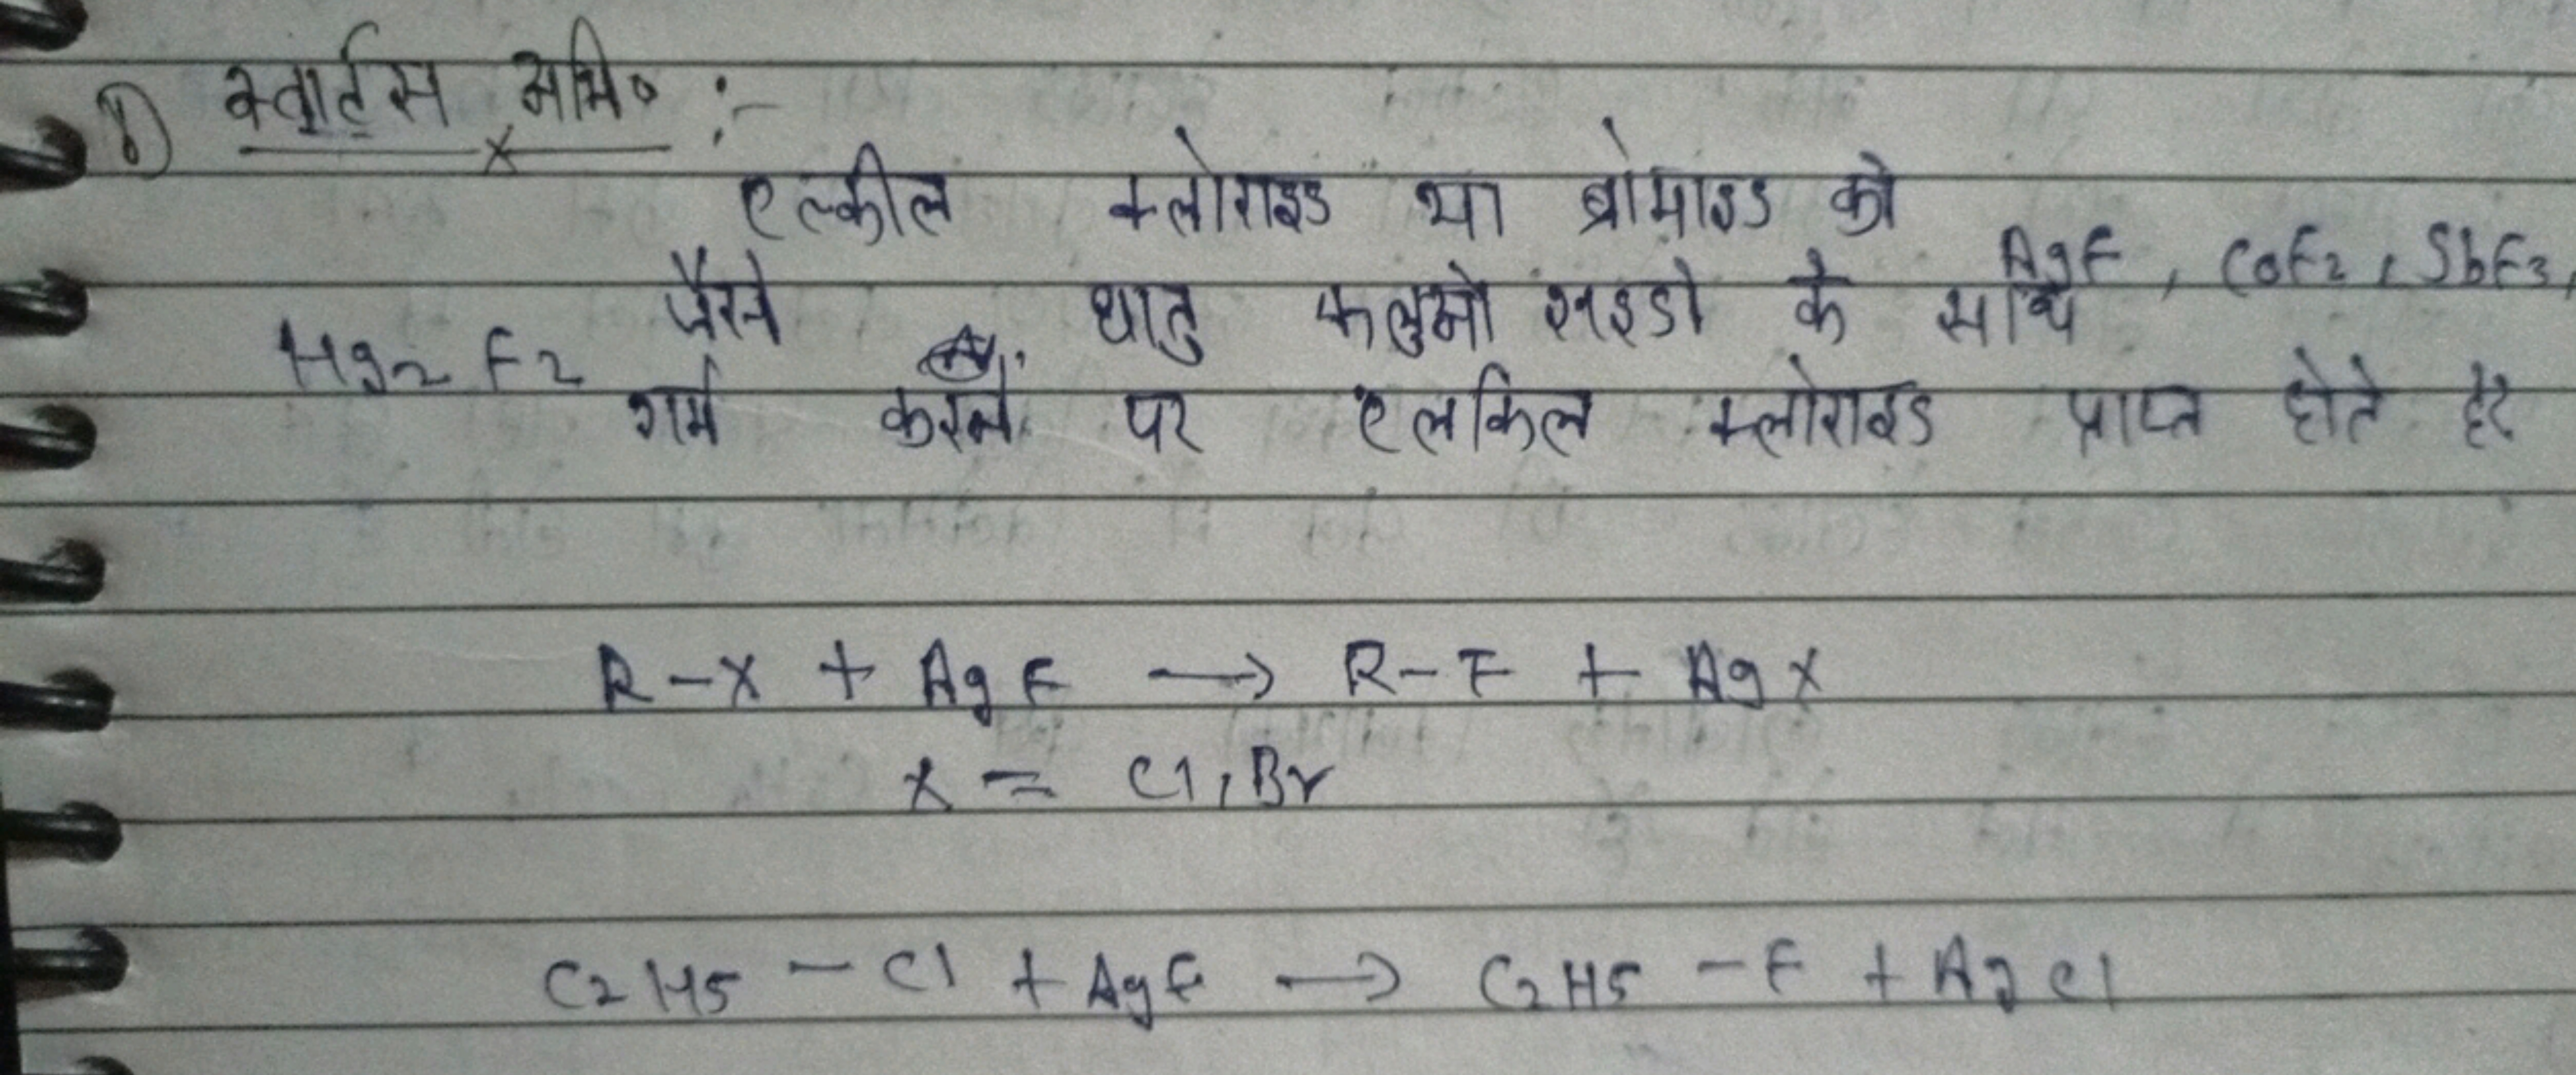 1) स्वार्ट्स अभि० :-
एल्कील क्लोराइड या ब्रोमाइड को
AgF, CoF2, SbF3,
Hg2F2 जैसे धातु फ्लुओराइडो के साथ
गर्म करने पर एलकिल क्लोराइड प्राप्त होते है
R-X + AgF → R-F + AgX
X = Cl, Br
C2H5 - Cl + AgF → C2H5 - F + AgCl